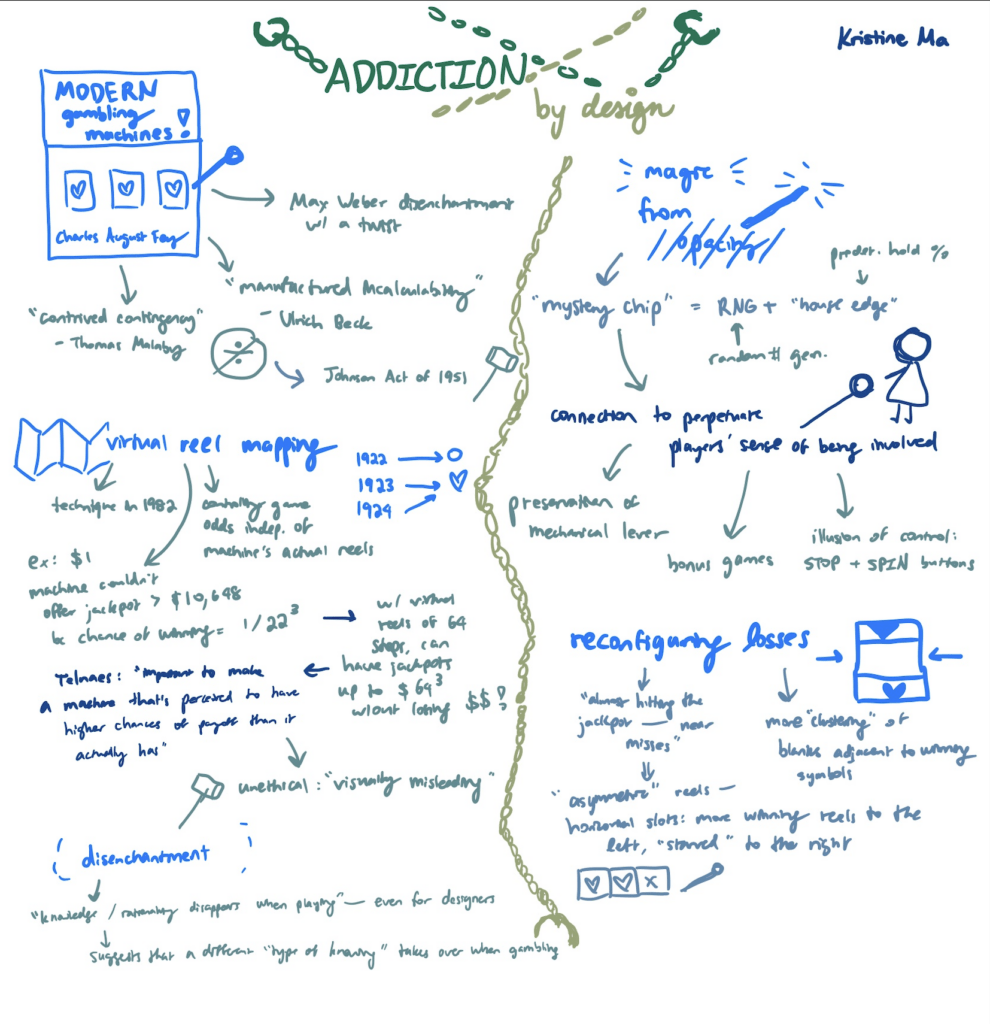 Kristine Ma
ADDICTION
by design
MODERN
gambling
machines!
Charles August Fey
Max Weber disenchantment
w/ a twist
"manufactured incalculability"
- Ulrich Beck
"contrived contingency"
- Thomas Malaby
Johnson Act of 1951
virtual reel mapping
technique in 1982
controlling game
odds indep. of
machine's actual reels
1922
1923
1924
ex: $1
machine couldn't
offer jackpot > $10,648
bc chance of winning = 1/22³
w/ virtual
reels of 64
stops, can
have jackpots
up to $64³
w/out losing $$!
Telnaes: "important to make
a machine that's perceived to have
higher chances of payoff than it
actually has"
unethical: "visually misleading"
disenchantment
"knowledge / rationality disappears when playing" — even for designers
suggests that a different "type of knowing" takes over when gambling
magic
from
opacity
preder. hold %
"mystery chip" = RNG + "house edge"
random # gen.
connection to perpetuate
players' sense of being involved
preservation of
mechanical lever
bonus games
illusion of control:
STOP + SPIN buttons
reconfiguring losses
"almost hitting the
jackpot — near
misses"
more "clustering" of
blanks adjacent to winning
symbols
"asymmetric" reels —
horizontal slots: more winning reels to the
left, "starved" to the right
X